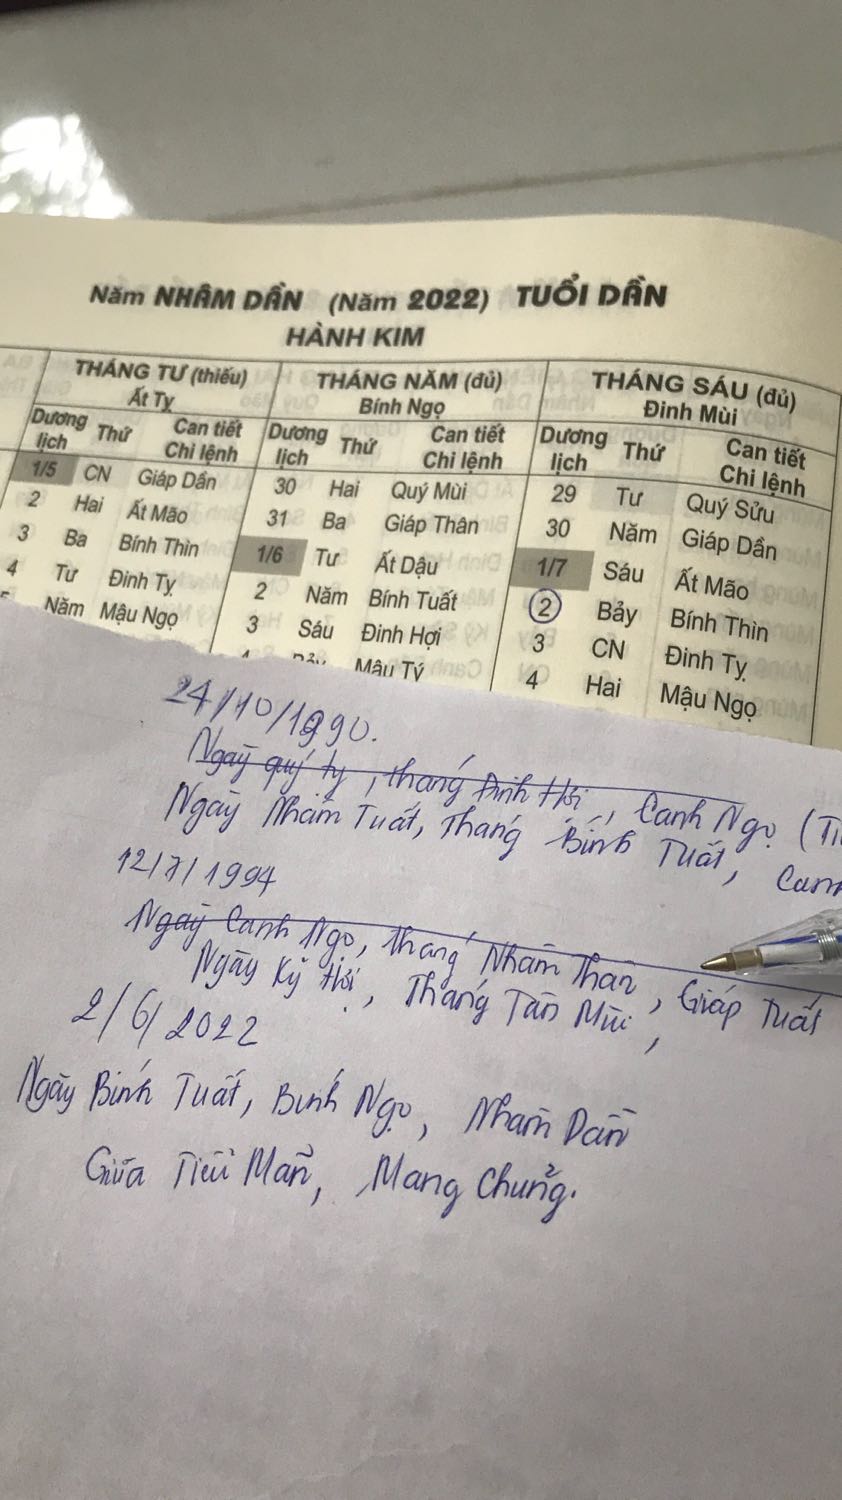 Năm NHÂM DẦN (Năm 2022) TUỔI DẦN
HÀNH KIM
THÁNG TƯ (thiếu) THÁNG NĂM (đủ) THÁNG SÁU (đủ)
Ất Tỵ Bính Ngọ Đinh Mùi
Dương lịch Thứ Can tiết Chi lệnh Dương lịch Thứ Can tiết Chi lệnh Dương lịch Thứ Can tiết Chi lệnh
1/5 CN Giáp Dần 30 Hai Quý Mùi 29 Tư Quý Sửu
2 Hai Ất Mão 31 Ba Giáp Thân 30 Năm Giáp Dần
3 Ba Bính Thìn 1/6 Tư Ất Dậu 1/7 Sáu Ất Mão
4 Tư Đinh Tỵ 2 Năm Bính Tuất 2 Bảy Bính Thìn
Năm Mậu Ngọ 3 Sáu Đinh Hợi 3 CN Đinh Tỵ
Mậu Tý 4 Hai Mậu Ngọ
24/10/1990.
Ngày quý tỵ, tháng Đinh Hợi, Canh Ngọ
Ngày Nhâm Tuất, Tháng Bính Tuất,
12/7/1994
Ngày Canh Ngọ, Tháng Nhâm Thân, Giáp Tuất
Ngày Kỷ Hợi, Tháng Tân Mùi,
2/6/2022
Ngày Bính Tuất, Bính Ngọ, Nhâm Dần
Giữa Tiểu Mãn, Mang Chủng.